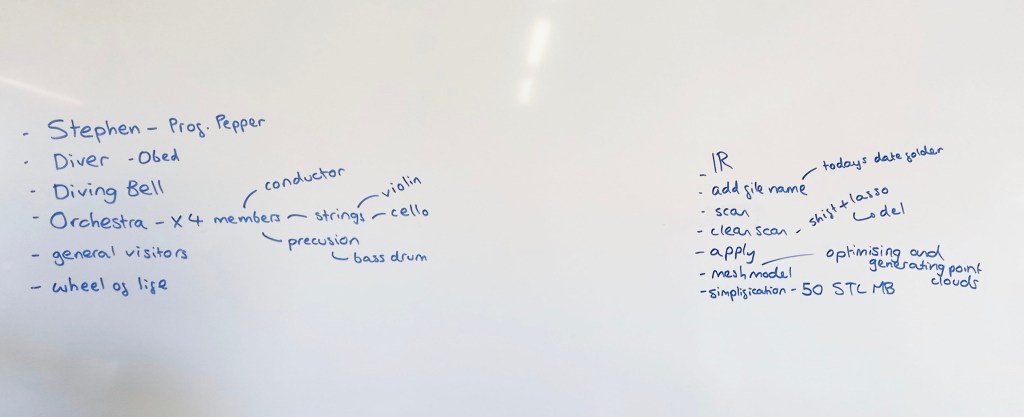 - Stephen - Prof. Pepper
- Diver - Obed
- Diving Bell
conductor
- Orchestra - x 4 members - strings - violin
- cello
precusion
bass drum
- general visitors
- wheel of life
- IR
todays date folder
- add file name
- scan
- clean scan - shift + lasso
del
- apply
- mesh model - optimising and
generating point
clouds
- simplification - 50 STL MB